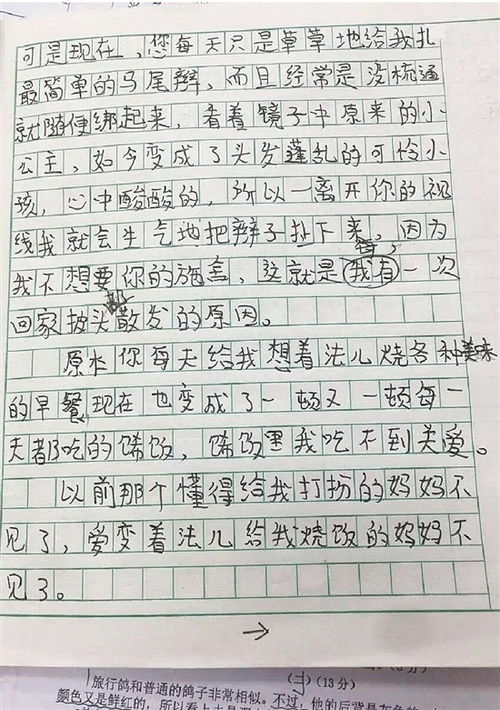 可是现在，您每天只是草草地给我扎
最简单的马尾辫，而且经常是没梳通
就随便绑起来，看着镜子中原来的小
公主，如今变成了头发蓬乱的可怜小
孩，心中酸酸的，所以一离开你的视
线我就会生气地把辫子扯下来，因为
我不想要你的施舍，这就是我有一次
每
回家披头散发的原因。
原来你每天给我想着法儿烧各种美味
的早餐现在也变成了一顿又一顿每一
天都吃的稀饭，稀饭里我吃不到关爱。
以前那个懂得给我打扮的妈妈不
见了，爱变着法儿给我烧饭的妈妈不
见了。
→
(13分)
旅行鸽和普通的鸽子非常相似。不过，他的后背是灰色的
颜色又是鲜红的，所以看上去